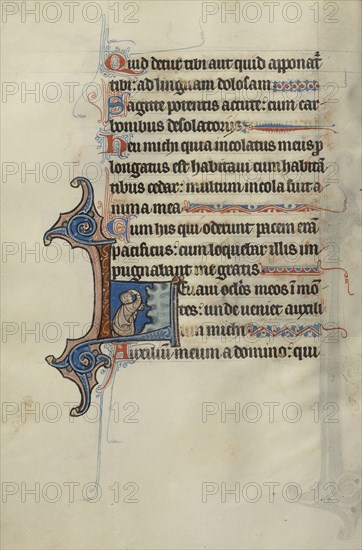 Quid detur tibi aut quid apponat᷑
tibi: ad linguam dolosam
Sagitte potentis accute: cum car
bonibus desolatoriis
Heu michi quia incolatus meus ꝓ
longatus est habitavi cum habitā
tibus cedar: multum incola fuit a
nima mea
Cum his qui oderunt pacem erā
pacificus: cum loquebar illis im
pugnabant me gratis
Levavi oclōs meos ī mō
tes: unde veniet auxili
michi
Auxiliū meum a domino: qui
PHOTO 12